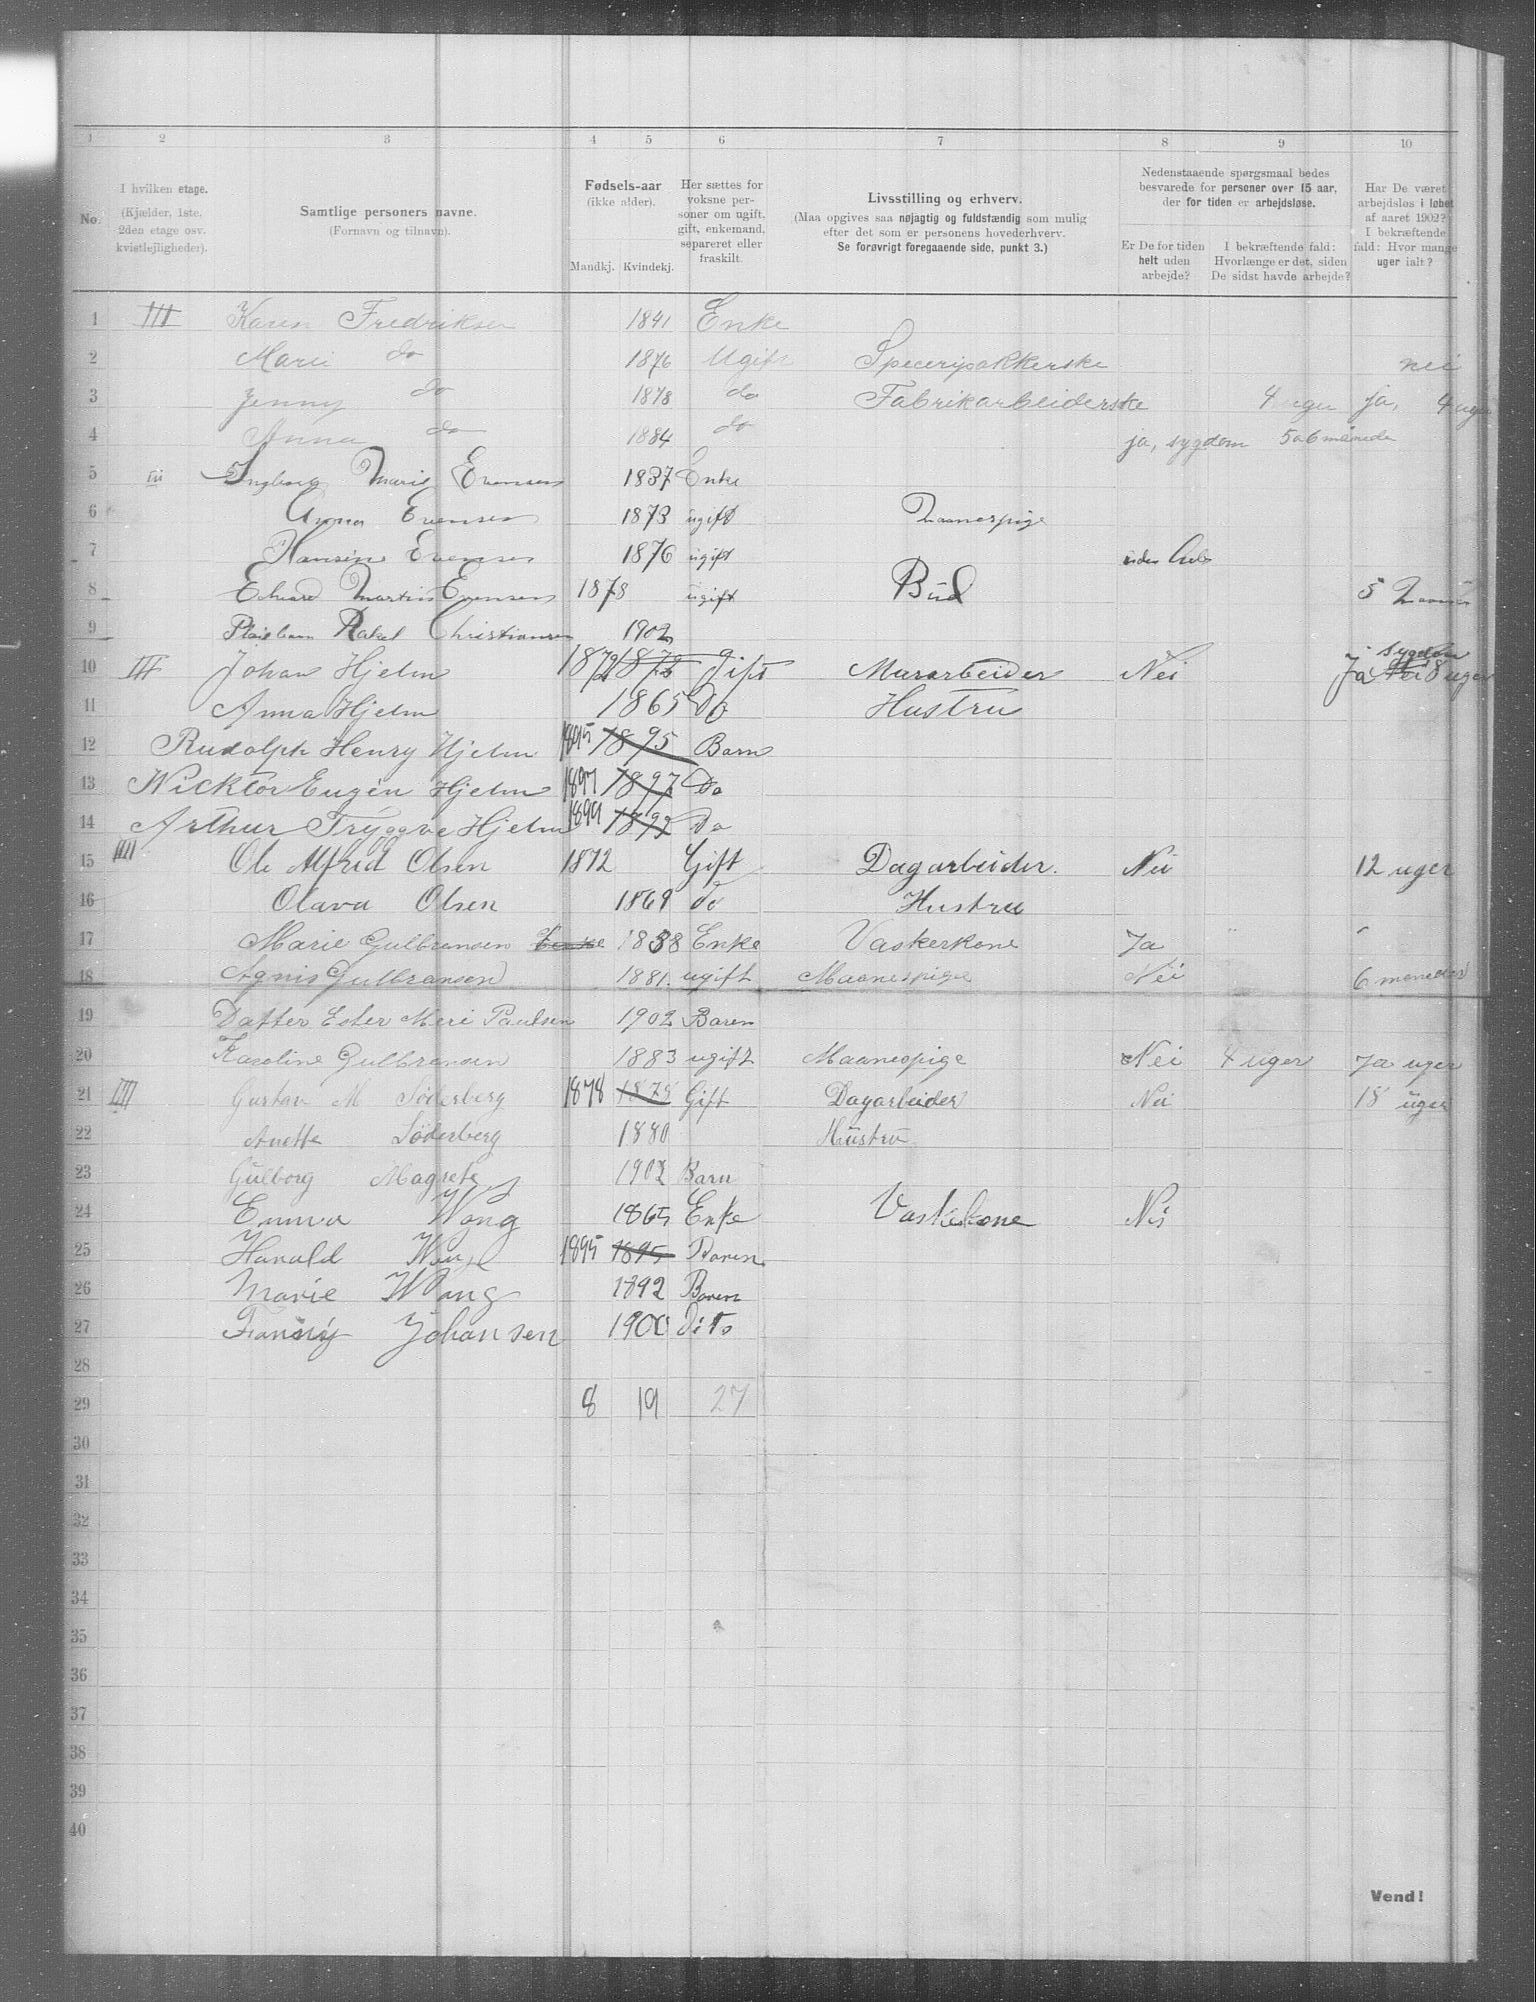 1 2 3 4 5 6 7 8 9 10
No.
I hvilken etage.
(Kjælder, 1ste, 2den etage osv. kvistlejligheder).
Samtlige personers navne.
(Fornavn og tilnavn).
Fødsels-aar
(ikke alder).
Mandkj. Kvindekj.
Her sættes for voksne personer om ugift, gift, enkemand, separeret eller fraskilt.
Livsstilling og erhverv.
(Maa opgives saa nøjagtig og fuldstændig som mulig efter det som er personens hovederhverv.
Se forøvrigt foregaaende side, punkt 3.)
Nedenstaaende spørgsmaal bedes besvarede for personer over 15 aar, der for tiden er arbejdsløse.
Er De for tiden helt uden arbejde?
I bekræftende fald: Hvorlænge er det, siden De sidst havde arbejde?
Har De været arbejdsløs i løbet af aaret 1902? I bekræftende fald: Hvor mange uger ialt?
1 III Karen Fredriksen 1841 Enke
2 Marie do 1876 Ugift Speceripakkerske nei
3 Jenny do 1878 do Fabrikarbeiderske 4 uger ja, 4 uger
4 Anna do 1884 do ja, sygdom 5 a 6 måneder
5 III Ingborg Marie Evensen 1837 Enke
6 Anna Evensen 1873 ugift Maanespige
7 Hansine Evensen 1876 ugift uden Arb
8 Edvard Martin Evensen 1878 ugift Bud 5
9 Pleiebarn Rakel Christiansen 1902
10 III Johan Hjelm 1872 1872 gift Murarbeider Nei Ja sygdom 8 uger
11 Anna Hjelm 1865 Do Hustru
12 Rudolph Henry Hjelm 1895 1895 Barn
13 Nicktor Eugén Hjelm 1897 1897 Do
14 Arthur Tryggve Hjelm 1899 1899 Do
15 III Ole Alfrid Olsen 1872 Gift Dagarbeider. Nei 12 uger
16 Olava Olsen 1869 do Hustru
17 Marie Gulbransen Enke 1838 Enke Vaskerkone Ja " "
18 Agnis Gulbransen 1881. ugift Maanespige Nei 6 maneder
19 Datter Ester Meri Paulsen 1902 Baren
20 Karoline Gulbransen 1883 ugift Maanespige Nei 4 uger Ja uger
21 III Gustav M Søderberg 1878 1878 Gift Dagarbeider Nei 18 uger
22 Anette Søderberg 1880 Hustru
23 Gulborg Magrete 1902 Barn
24 Emma Wang 1865 Enke Vaskekone Nei
25 Harald Wang 1895 1895 Baren
26 Marie Wang 1892 Baren
27 Fanny Johansen 1900 Dito
28
29 8 19 27
30
31
32
33
34
35
36
37
38
39
40
Vend!